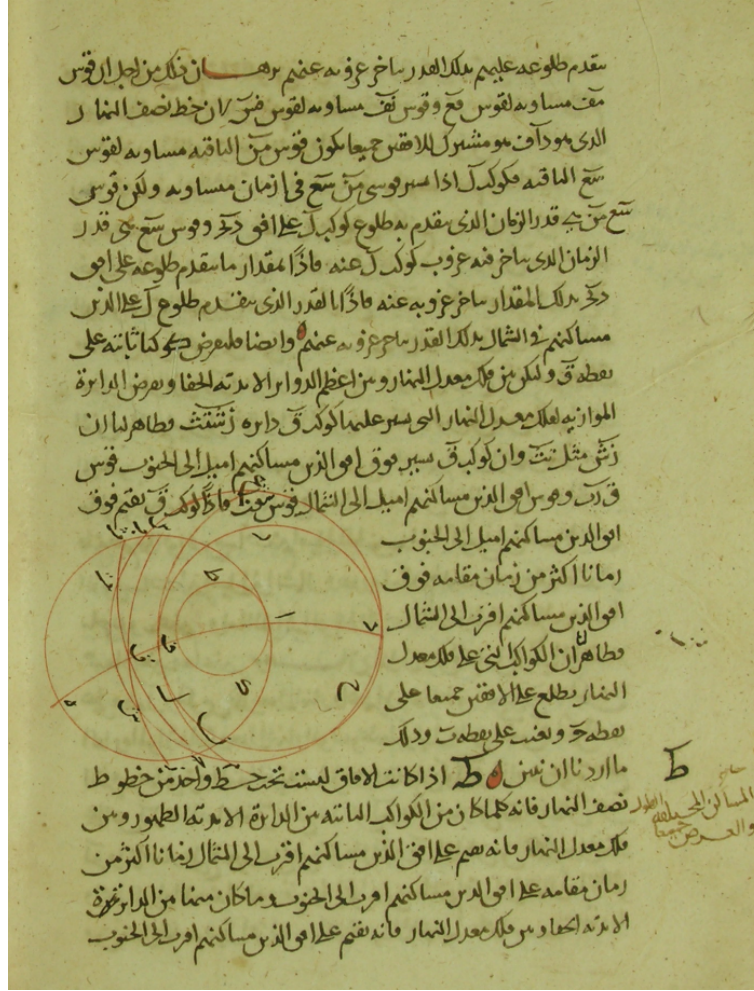 يتقدم طلوعه عليهم بذلك القدر يتاخر غروبه عنهم برهان ذلك من اجل ان قوس
مف مساويه لقوس فع وقوس نف مساويه لقوس فس لان خط نصف النهار
الذى هو داف هو مشترك للافقين جميعا يكون قوس من الباقيه مساويه لقوس
سع الباقيه فكوكب ل اذا يسير قوسى من سع فى ازمان متساويه ولكن قوس
من هى قدر الزمان الذى يتقدم به طلوع كوكب ل على افق وقوس سع هى قدر
الزمان الذى يتاخر فيه غروب كوكب ل عنه فاذا مقدار ما يتقدم طلوعه على افق
بذلك المقدار يتاخر غروبه عنه فاذا بالقدر الذى يتقدم طلوع ل على الذين
مساكنهم فى الشمال بذلك القدر يتاخر غروبه عنهم وايضا فليعرض كوكبا ثابته على
نقطه ق وليكن بين فلك معدل النهار وبين اعظم الدواير الابديه الخفا ويعرض الدايرة
الموازيه لفلك معدل النهار التى يسير عليها كوكب ق دايره فظاهر لنا ان
مثل وان كوكب ق يسير فوق افق الذين مساكنهم اميل الى الجنوب قوس
وفوق افق الذين مساكنهم اميل الى الشمال قوس فاذا كوكب ق يقيم فوق
افق الذين مساكنهم اميل الى الجنوب
زمانا اكثر من زمان مقامه فوق
افق الذين مساكنهم اقرب الى الشمال
فظاهر ان الكواكب التى على فلك معدل
النهار يطلع على الافقين جميعا على
نقطه ويغيب على نقطه وذلك
ما اردنا ان نبين ط اذا كانت الافاق ليست تحت خط واحد من خطوط
نصف النهار فانه كلما كان من الكواكب الثابته بين الدايرة الابديه الظهور وبين
فلك معدل النهار فانه يقيم على افق الذين مساكنهم اقرب الى الشمال زمانا اكثر من
زمان مقامه على افق الذين مساكنهم اقرب الى الجنوب وما كان منها بين الدايرة
الابديه الخفا وبين فلك معدل النهار فانه يقيم على افق الذين مساكنهم اقرب الى الجنوب
ط
المساكن المختلفه الطول
والعرض جميعا